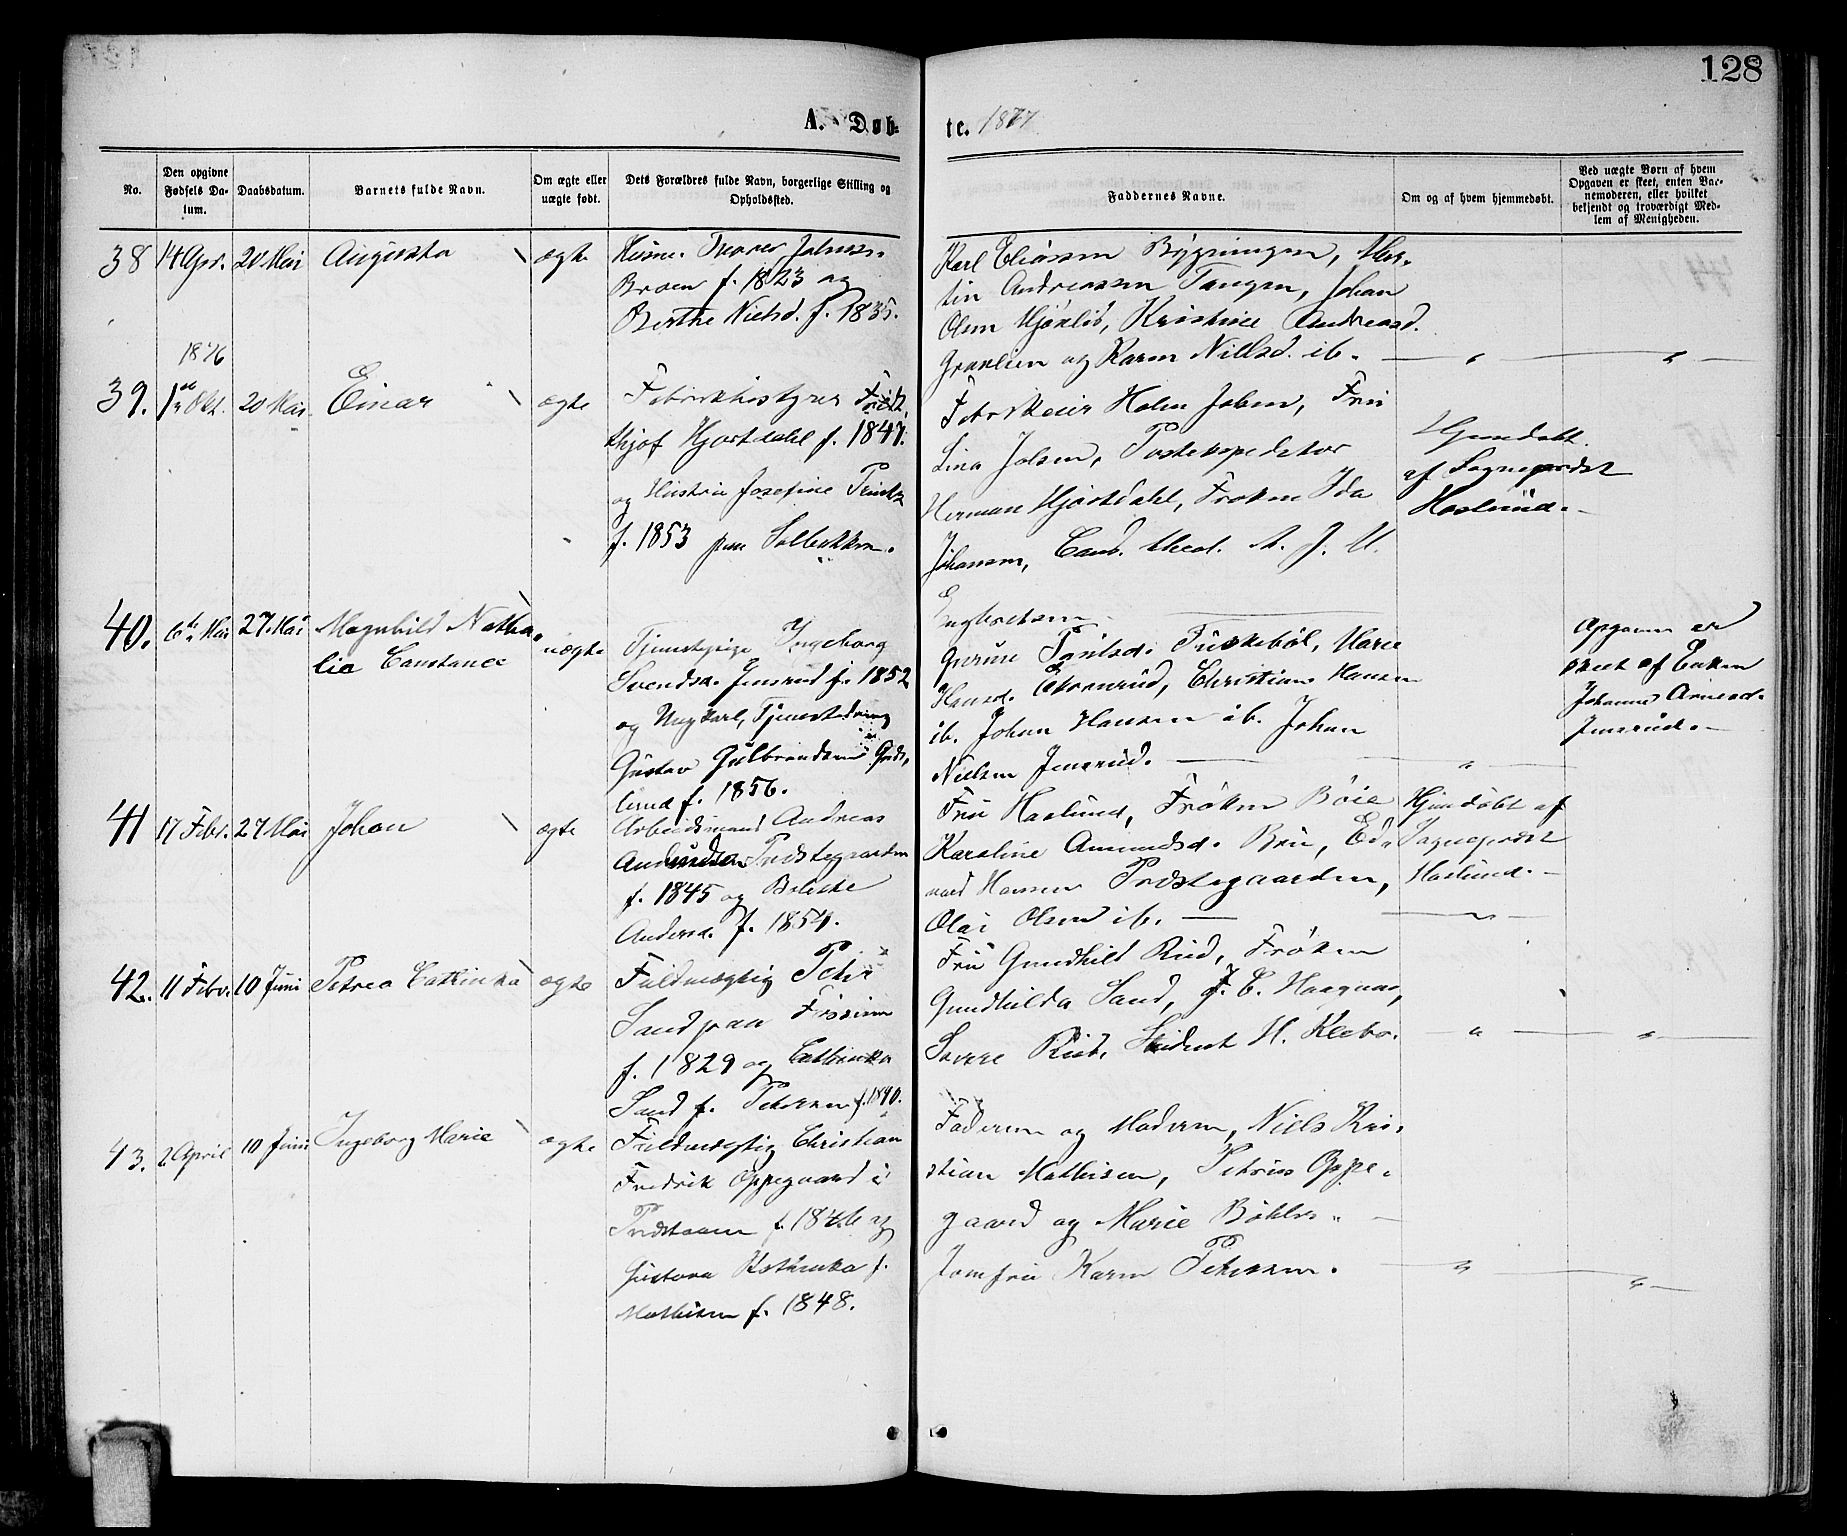 128
A. Døb-
te. 1877
No.
Den opgivne Fødsels Da-
tum.
Daabsdatum.
Barnets fulde Navn.
Om ægte eller
uægte født.
Dets Forældres fulde Navn, borgerlige Stilling og
Opholdssted.
Faddernes Navne.
Om og af hvem hjemmedøbt.
Ved uægte Børn af hvem
Opgaven er skeet, enten Bar-
nemoderen, eller hvilket
bekjendt og troværdigt Med-
lem af Menigheden.
38 14 Apr. 20 Mai Augusta ægte
Husm. Johns.
Braen f. 1823 og
Berthe Nielsd. f. 1835.
Karl Eliassen Bygningen, Mar-
tin Andreassen Tangen, Johan
Olsen Kristine Andreasd.
Granlien og Karen Nilsd. ib.
1876
39. 1ste Okt. 20 Mai Einar ægte
Fabrikbestyrer Frid-
thjof Hjortdahl f. 1847.
og Hustru Josefine
f. 1853 paa Solbakken.
Fabrikeier Holm Jolsen, Fru
Lina Jolsen, Postexpeditør
Herman Hjortdahl, Frøken Ida
Johansen, Cand. theol. A. J. M.
Engbretsen.
Hjemdøbt
af Sognepræst
Haslund.
40. 6te Mai 27. Mai Magnhild Natha-
lie Constance uægte
Tjenestepige Ingeborg
Svendsd. Jensrud f. 1852
og Ungkarl, Tjenestedreng
Gustav Gulbrandsen
f. 1856.
Gurine Fuskebøl, Marie
Hansd. Christian Hansen
ib. Johan Hansen ib. Johan
Nielsen Jensrud.
Opgaven er
skeet af Enken
Johanne Arnesd.
Jensrud.
41 17 Febr. 27 Mai Johan ægte
Arbeidsmand Andreas
Præstegaarden
f. 1845 og
Andersd. f. 1854.
Fru Haslund, Frøken Boie
Karoline Amundsd. Bru, Ed-
vard Hansen Præstegaarden,
Olai Olsen ib.
Hjemdøbt af
Sognepræst
Haslund.
42. 11 Febr. 10 Juni Petrea Cathinka ægte
Fuldmægtig Peter
Sand paa
f. 1829 og Cathinka
Sand f. Petersen f. 1840.
Fru Gundhild Rud, Frøken
Gundhilda Sand, J. C.
Rud, Student H.
43. 2 April 10 Juni Ingeborg Marie ægte
Fuldmægtig Christian
Fredrik Oppegaard i
f. 1846 og
Gustava Kathinka f.
Mathisen f. 1848.
Faderen og Moderen, Niels Kri-
stian Mathisen, Petrus Oppe-
gaard og Marie Bøhler
Jomfru Karen Petersen.